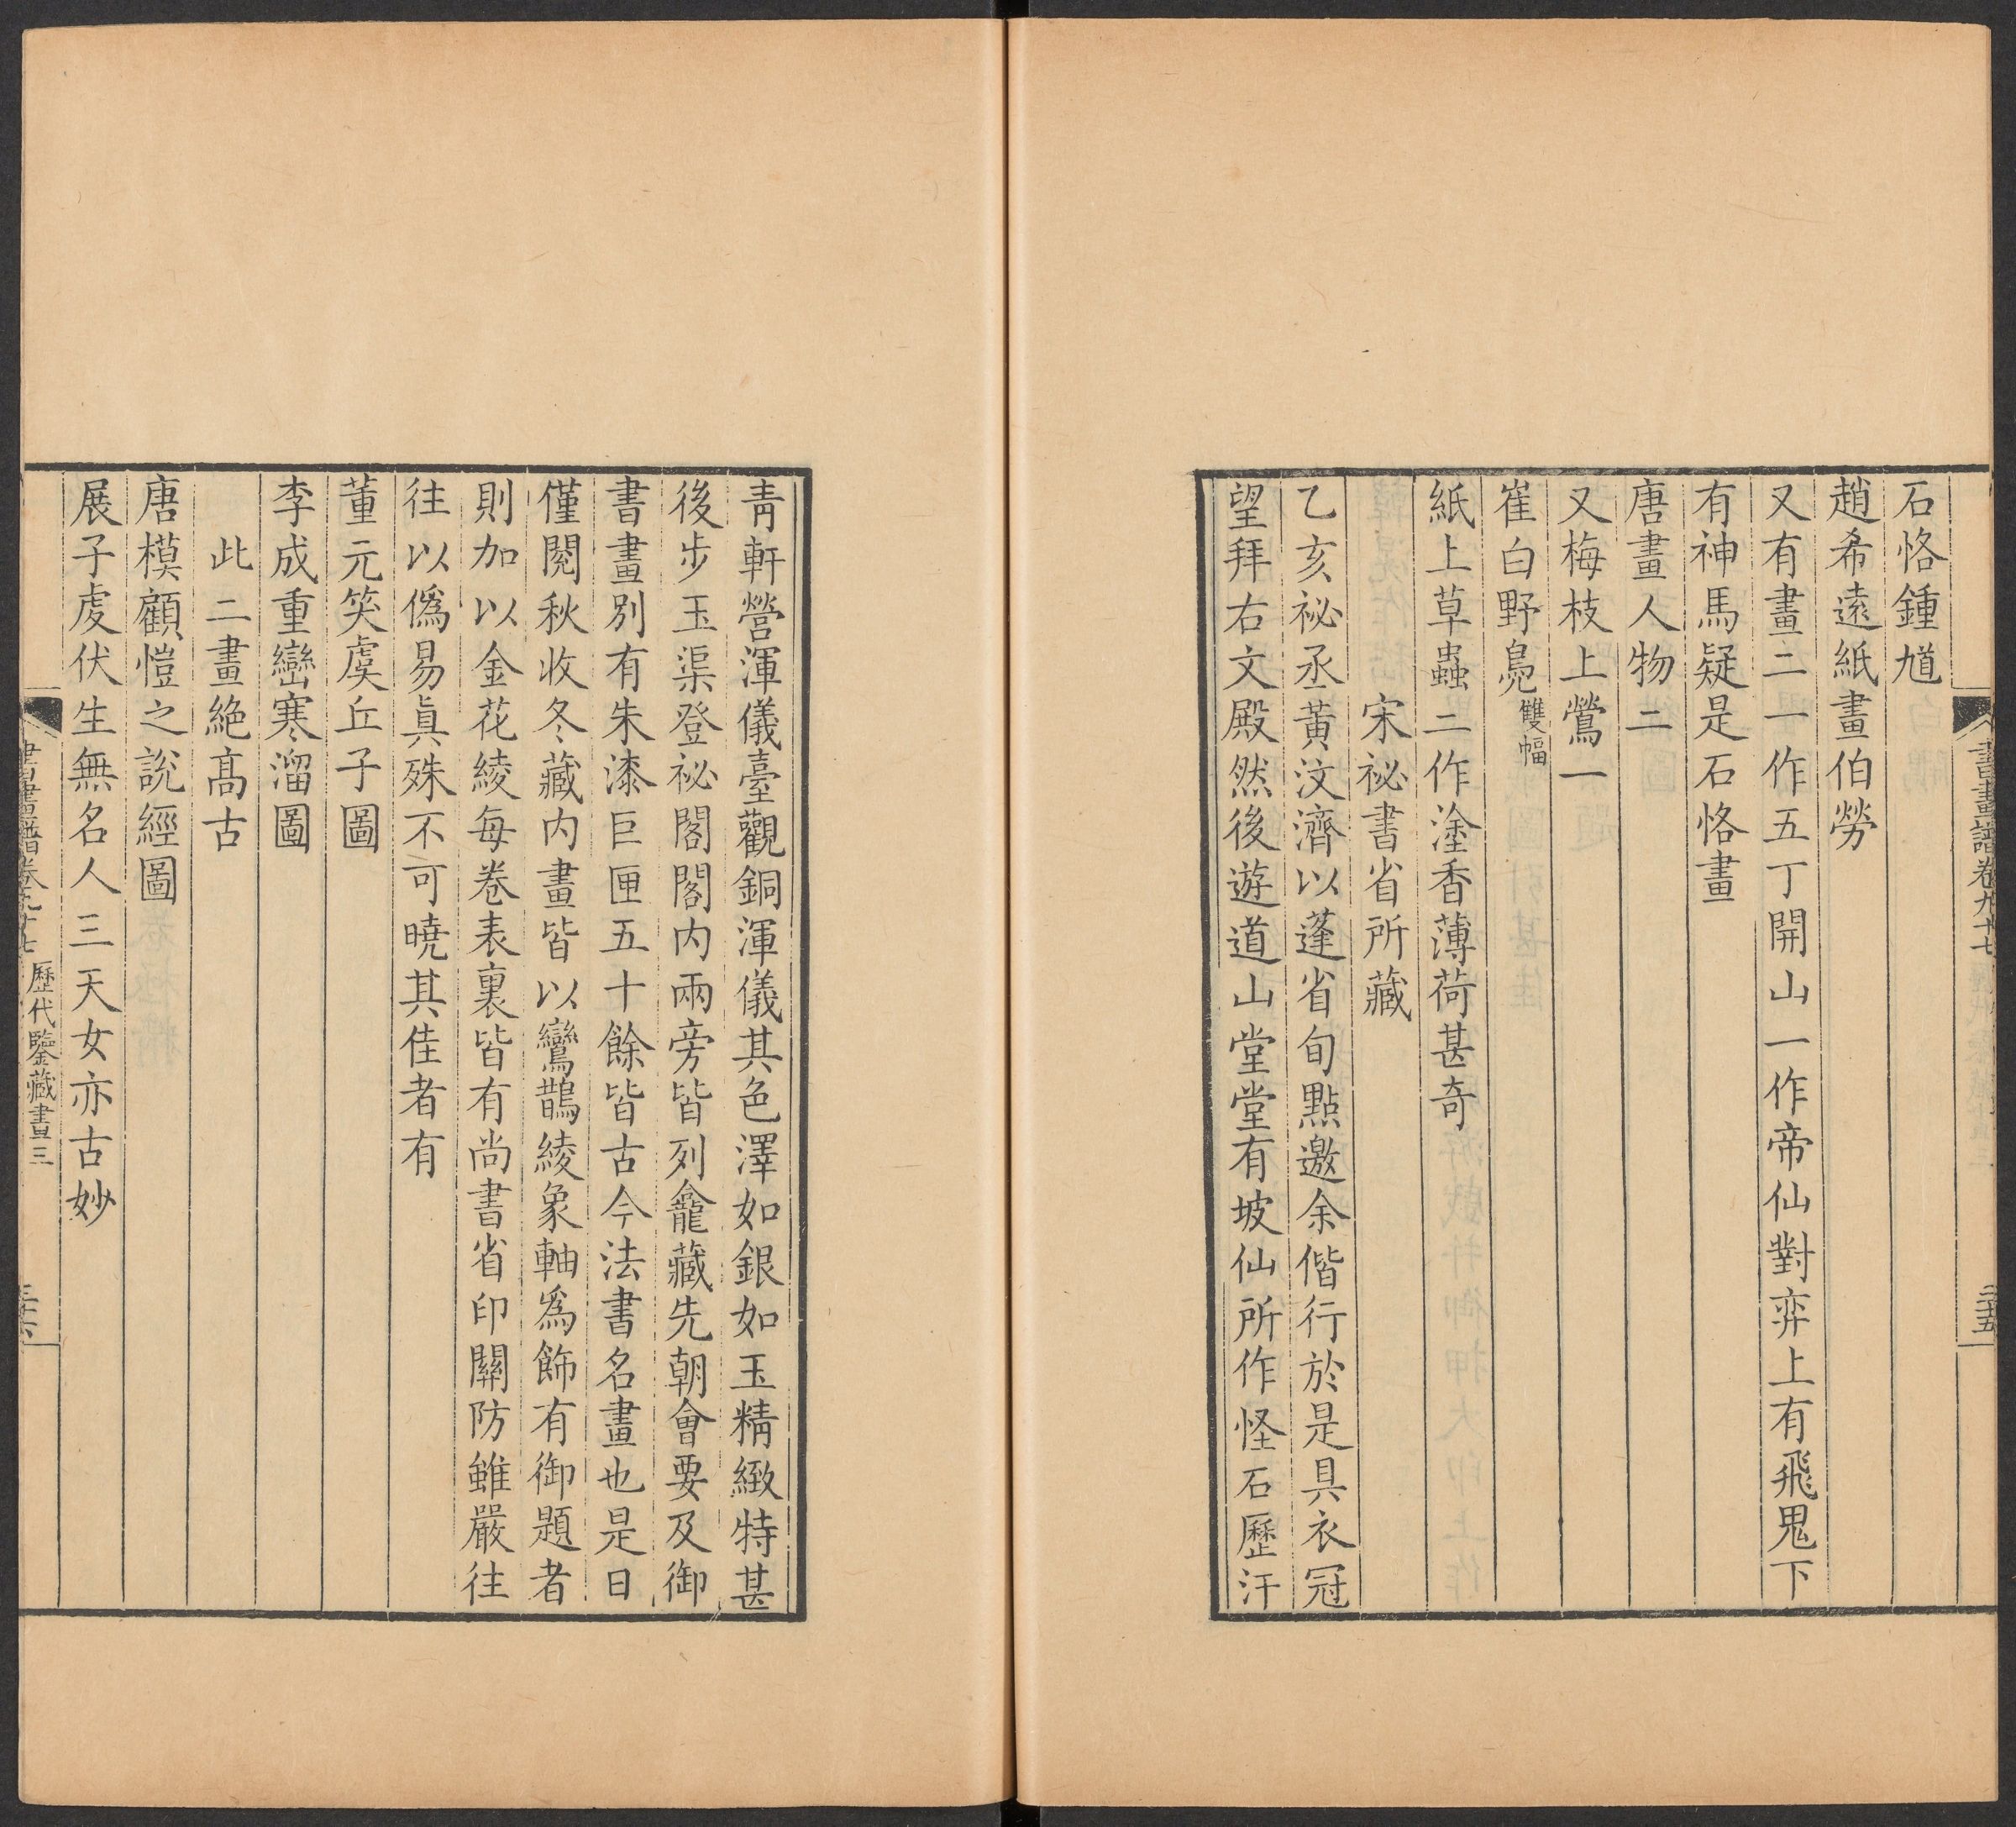 書畫譜卷九十七
三十五
石恪鍾馗
趙希遠紙畫伯勞
又有畫二一作五丁開山一作帝仙對弈上有飛鬼下
有神馬疑是石恪畫
唐畫人物二
又梅枝上鶯一
崔白野鳧雙幅
紙上草蟲二作塗香薄荷甚奇
宋祕書省所藏
乙亥祕丞黃汶濟以蓬省旬點邀余偕行於是具衣冠
望拜右文殿然後遊道山堂堂有坡仙所作怪石歷汗
青軒營渾儀臺觀銅渾儀其色澤如銀如玉精緻特甚
後步玉渠登祕閣閣內兩旁皆列龕藏先朝會要及御
書畫別有朱漆巨匣五十餘皆古今法書名畫也是日
僅閱秋收冬藏內畫皆以鸞鵲綾象軸爲飾有御題者
則加以金花綾每卷表裏皆有尚書省印關防雖嚴往
往以僞易眞殊不可曉其佳者有
董元笑虞丘子圖
李成重巒寒溜圖
此二畫絶髙古
唐模顧愷之說經圖
展子虔伏生無名人三天女亦古妙
書畫譜卷九十七 歷代鑒藏畫三